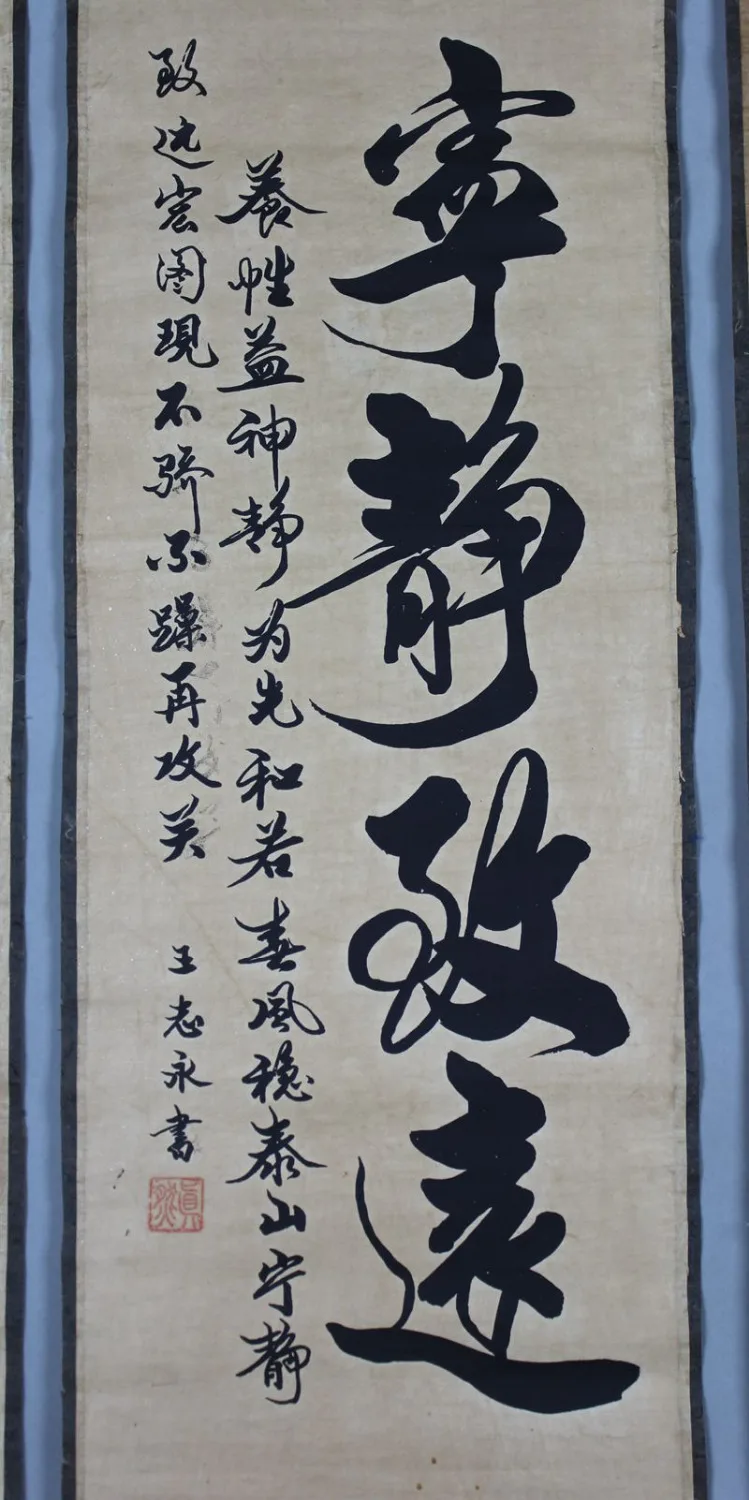 寧靜致遠
養性益神静为先和若春風穏泰山宁静
致远宏图現不骄不躁再攻关
王志永書